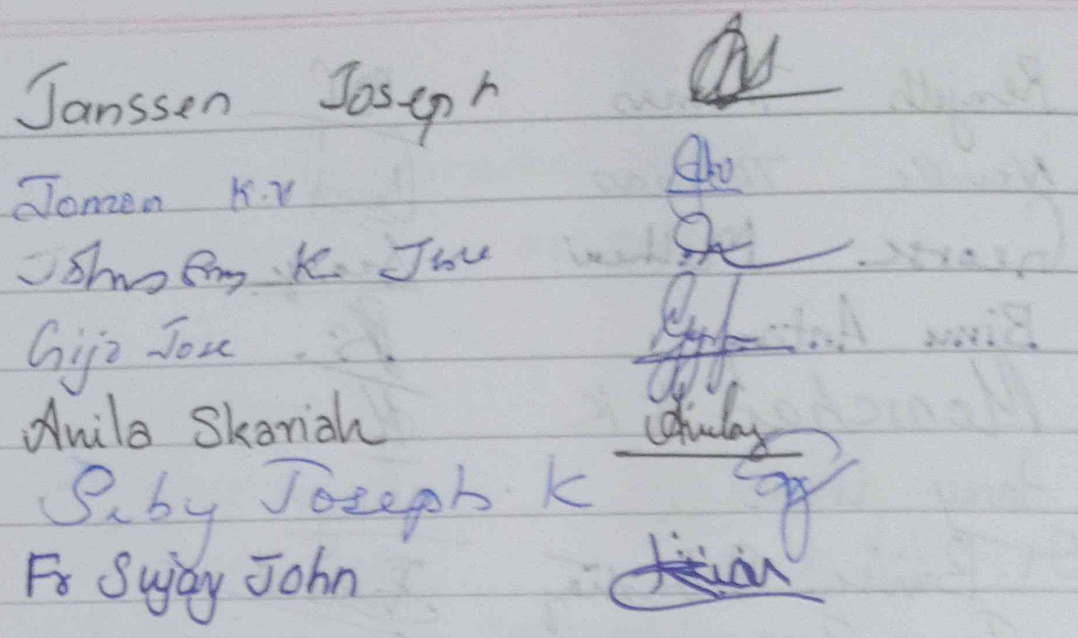 Janssen Joseph
Jomen K.V
Johnson K. Jose
Gijo Jose
Anila Skariah
Seby Joseph. K
Fr Sujay John